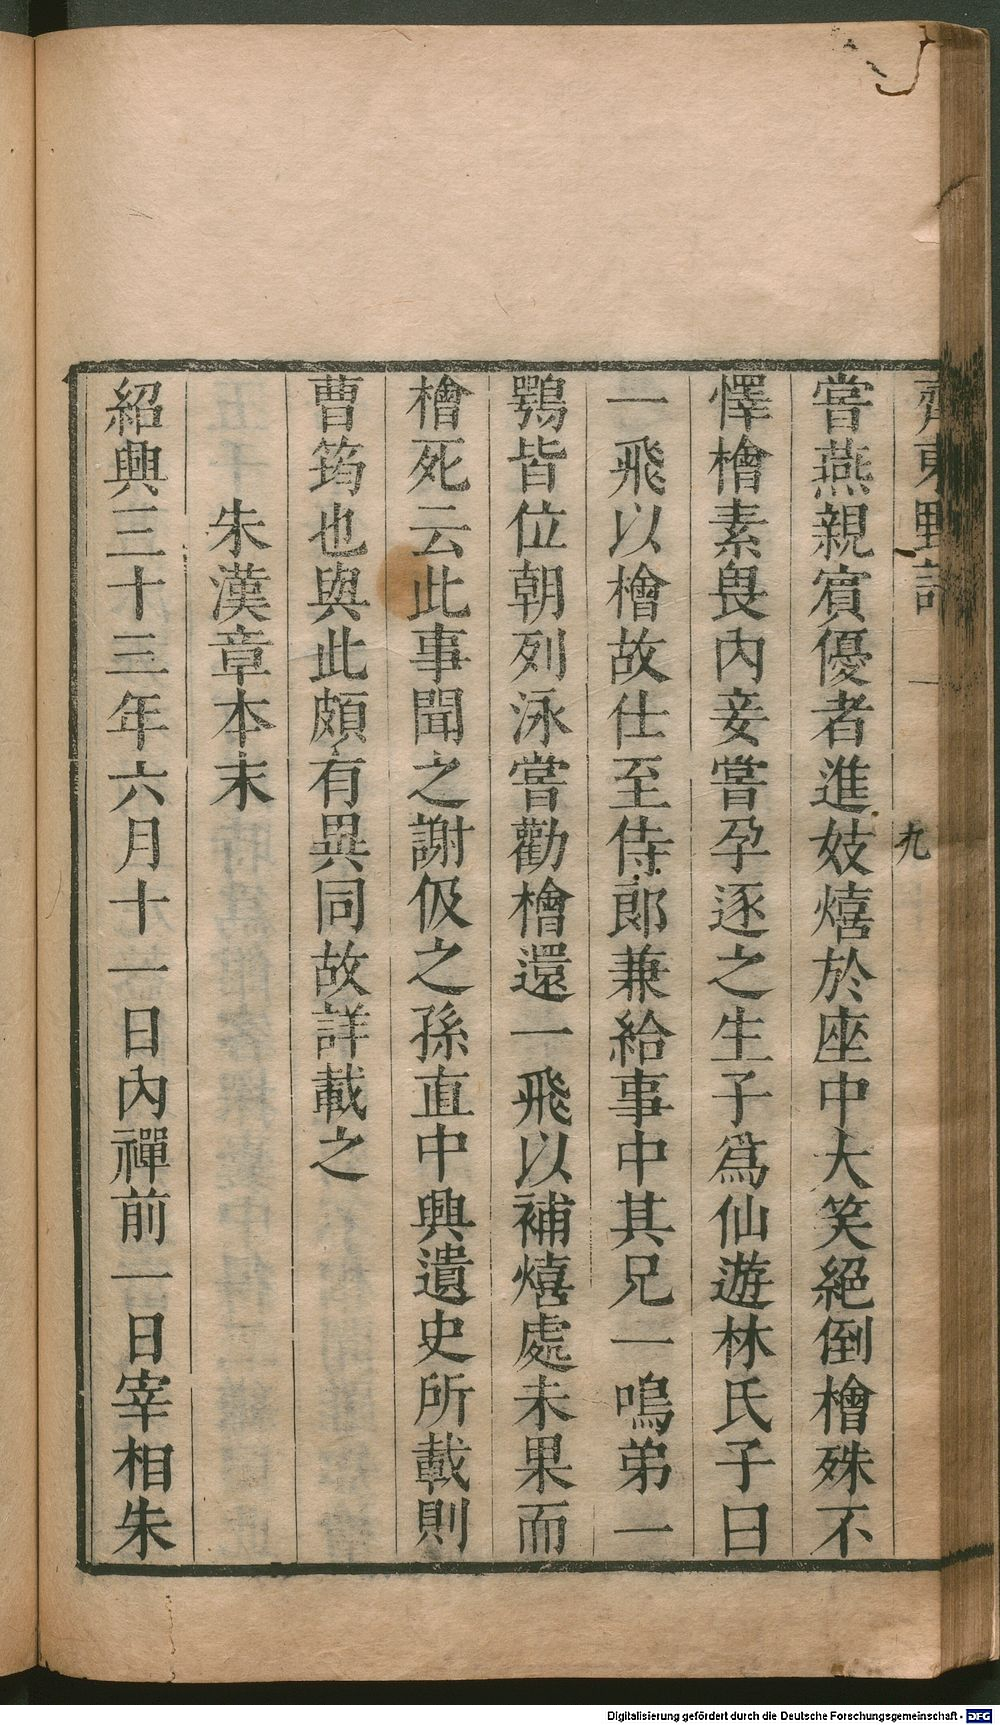 齊東野語 一 九
嘗燕親賓優者進妓熺於座中大笑絕倒檜殊不
懌檜素畏內妾嘗孕逐之生子爲仙遊林氏子曰
一飛以檜故仕至侍郞兼給事中其兄一鳴弟一
鶚皆位朝列泳嘗勸檜還一飛以補熺處未果而
檜死云此事聞之謝伋之孫直中興遺史所載則
曹筠也與此頗有異同故詳載之
朱漢章本末
紹興三十三年六月十一日內禪前一日宰相朱
Digitalisierung gefördert durch die Deutsche Forschungsgemeinschaft - DFG